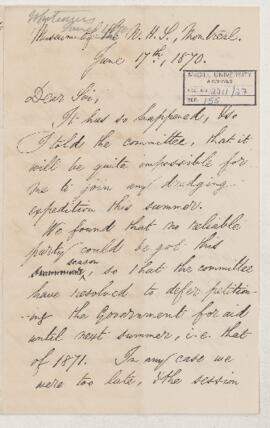 Whiteaves
Museum of the N. H. S., Montreal.
June 17th, 1870.
McGILL UNIVERSITY
ARCHIVES
ACC. NO. 2211/27
REF. 155
Dear Sir,
It has so happened, & so
I told the committee, that it
will be quite impossible for
me to join any dredging
expedition this summer.
We found that no reliable
party could be got this
season, so that the committee
have resolved to defer petition-
-ing the Government for aid
until next summer, i.e. that
of 1871. In any case we
were too late, & the session